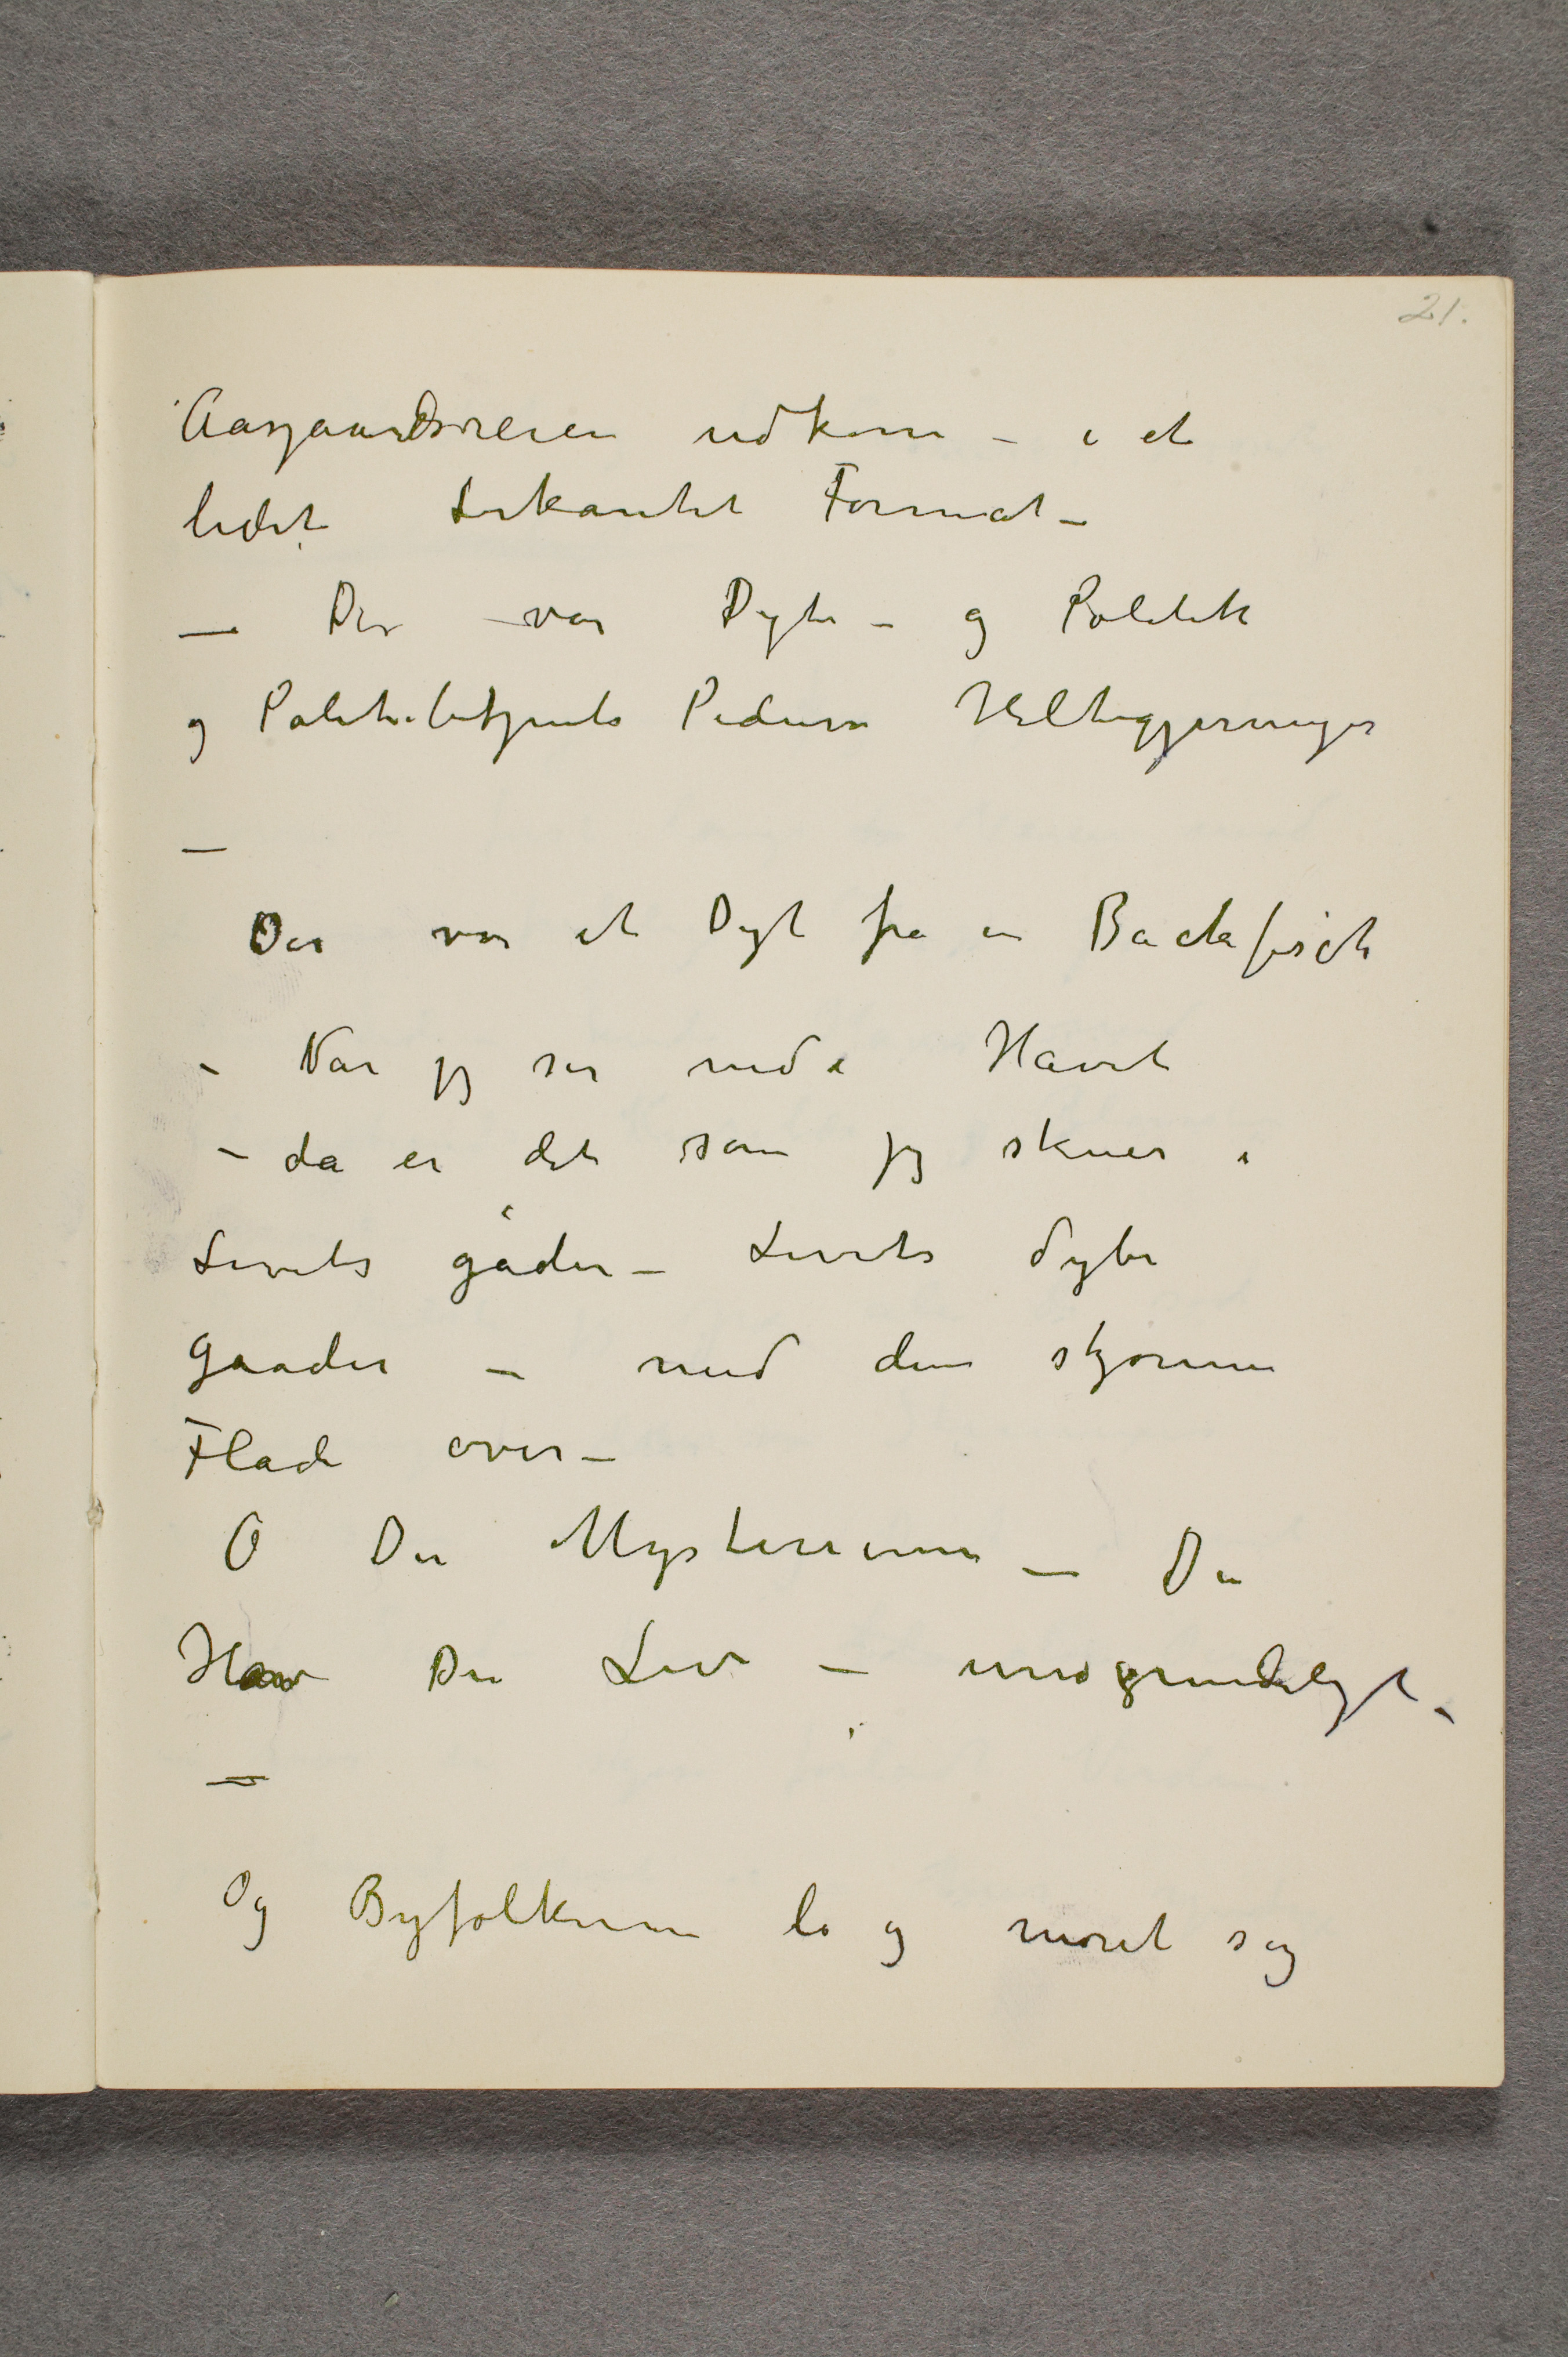 21.
Aasgaardsreien udkom – i et
lidet firkantet Format –
— Der var Digte – og Politik
og Politibetjents Pedersens Heltegjerninger
—
Der var et Digt fra en Backfisch
– Når jeg ser ned i Havet
– da er det som jeg skuer i
Livets gåder – Livets dybe
gaader – med den skjønne
Flade over –
O Du Mysterium — Du
Hav Du Liv – uudgrundeligt –
—
Og Byfolkene lo og moret sig